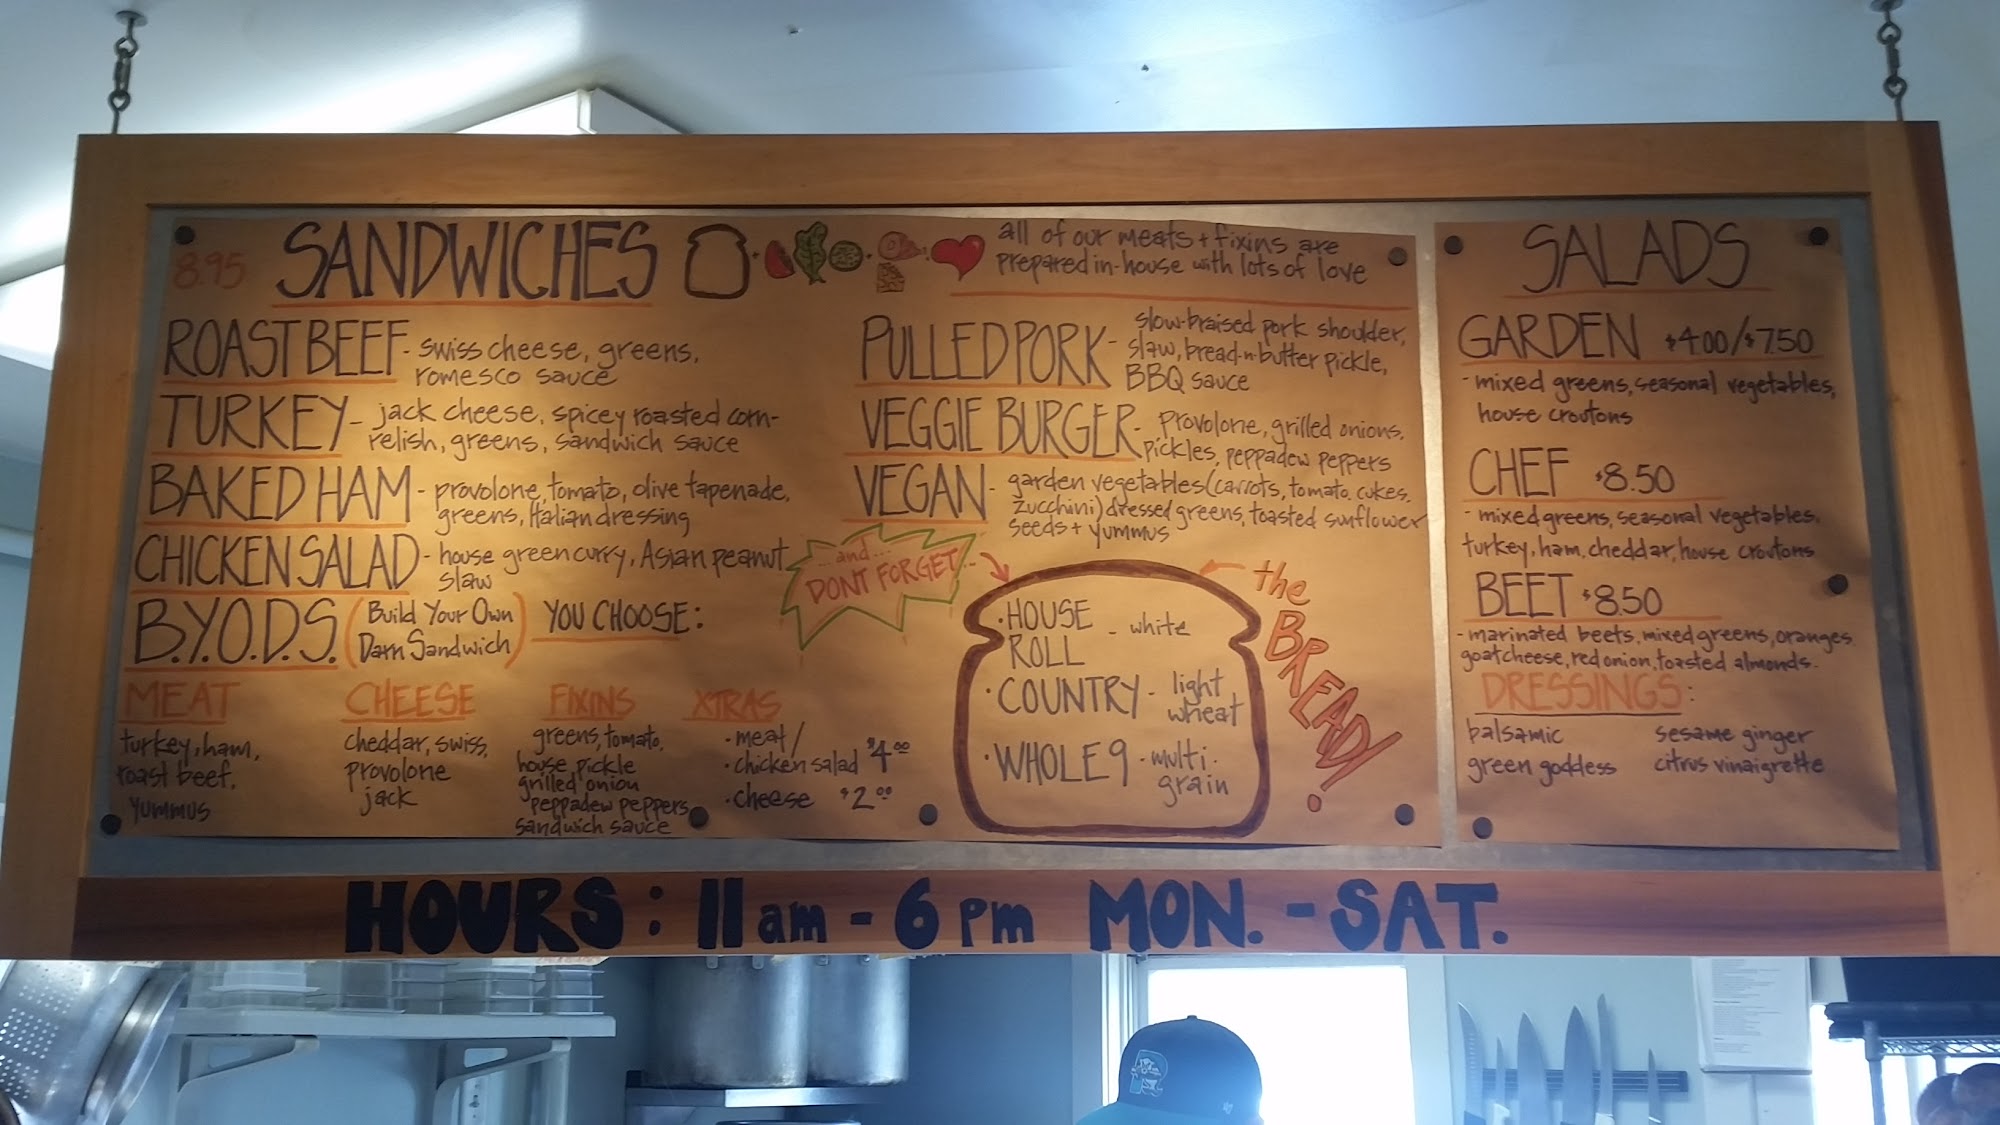 8.95 SANDWICHES
all of our meats + fixins are
prepared in-house with lots of love
ROAST BEEF - swiss cheese, greens,
romesco sauce
TURKEY - jack cheese, spicey roasted corn-
relish, greens, sandwich sauce
BAKED HAM - provolone, tomato, olive tapenade,
greens, Italian dressing
CHICKEN SALAD - house green curry, Asian peanut
slaw
B.Y.O.D.S. (Build Your Own
Darn Sandwich) YOU CHOOSE:
MEAT
turkey, ham,
roast beef,
yummus
CHEESE
cheddar, swiss,
provolone
jack
FIXINS
greens, tomato,
house pickle
grilled onion
peppadew peppers
sandwich sauce
XTRAS
· meat/
· chicken salad $4.00
· cheese $2.00
PULLED PORK - slow-braised pork shoulder,
slaw, bread-n-butter pickle,
BBQ sauce
VEGGIE BURGER - Provolone, grilled onions,
pickles, peppadew peppers
VEGAN - garden vegetables (carrots, tomato, cukes,
zucchini) dressed greens, toasted sunflower
seeds + yummus
... and ...
DONT FORGET...
the
BREAD!
· HOUSE
ROLL - white
· COUNTRY - light
wheat
· WHOLE 9 - multi-
grain
SALADS
GARDEN $4.00/$7.50
- mixed greens, seasonal vegetables,
house croutons
CHEF $8.50
- mixed greens, seasonal vegetables,
turkey, ham, cheddar, house croutons
BEET $8.50
- marinated beets, mixed greens, oranges
goat cheese, red onion, toasted almonds.
DRESSINGS:
balsamic
green goddess
sesame ginger
citrus vinaigrette
HOURS: 11am - 6pm MON. - SAT.